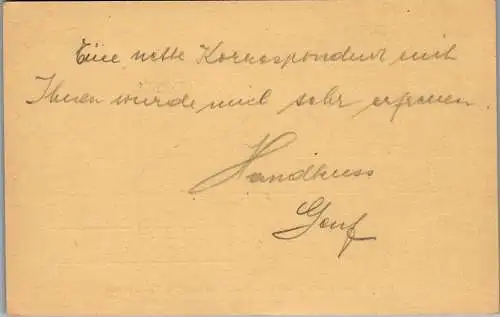 Eine nette Korrespondent mit
Ihnen würde mich sehr erfreuen.
Handkuss
Genf